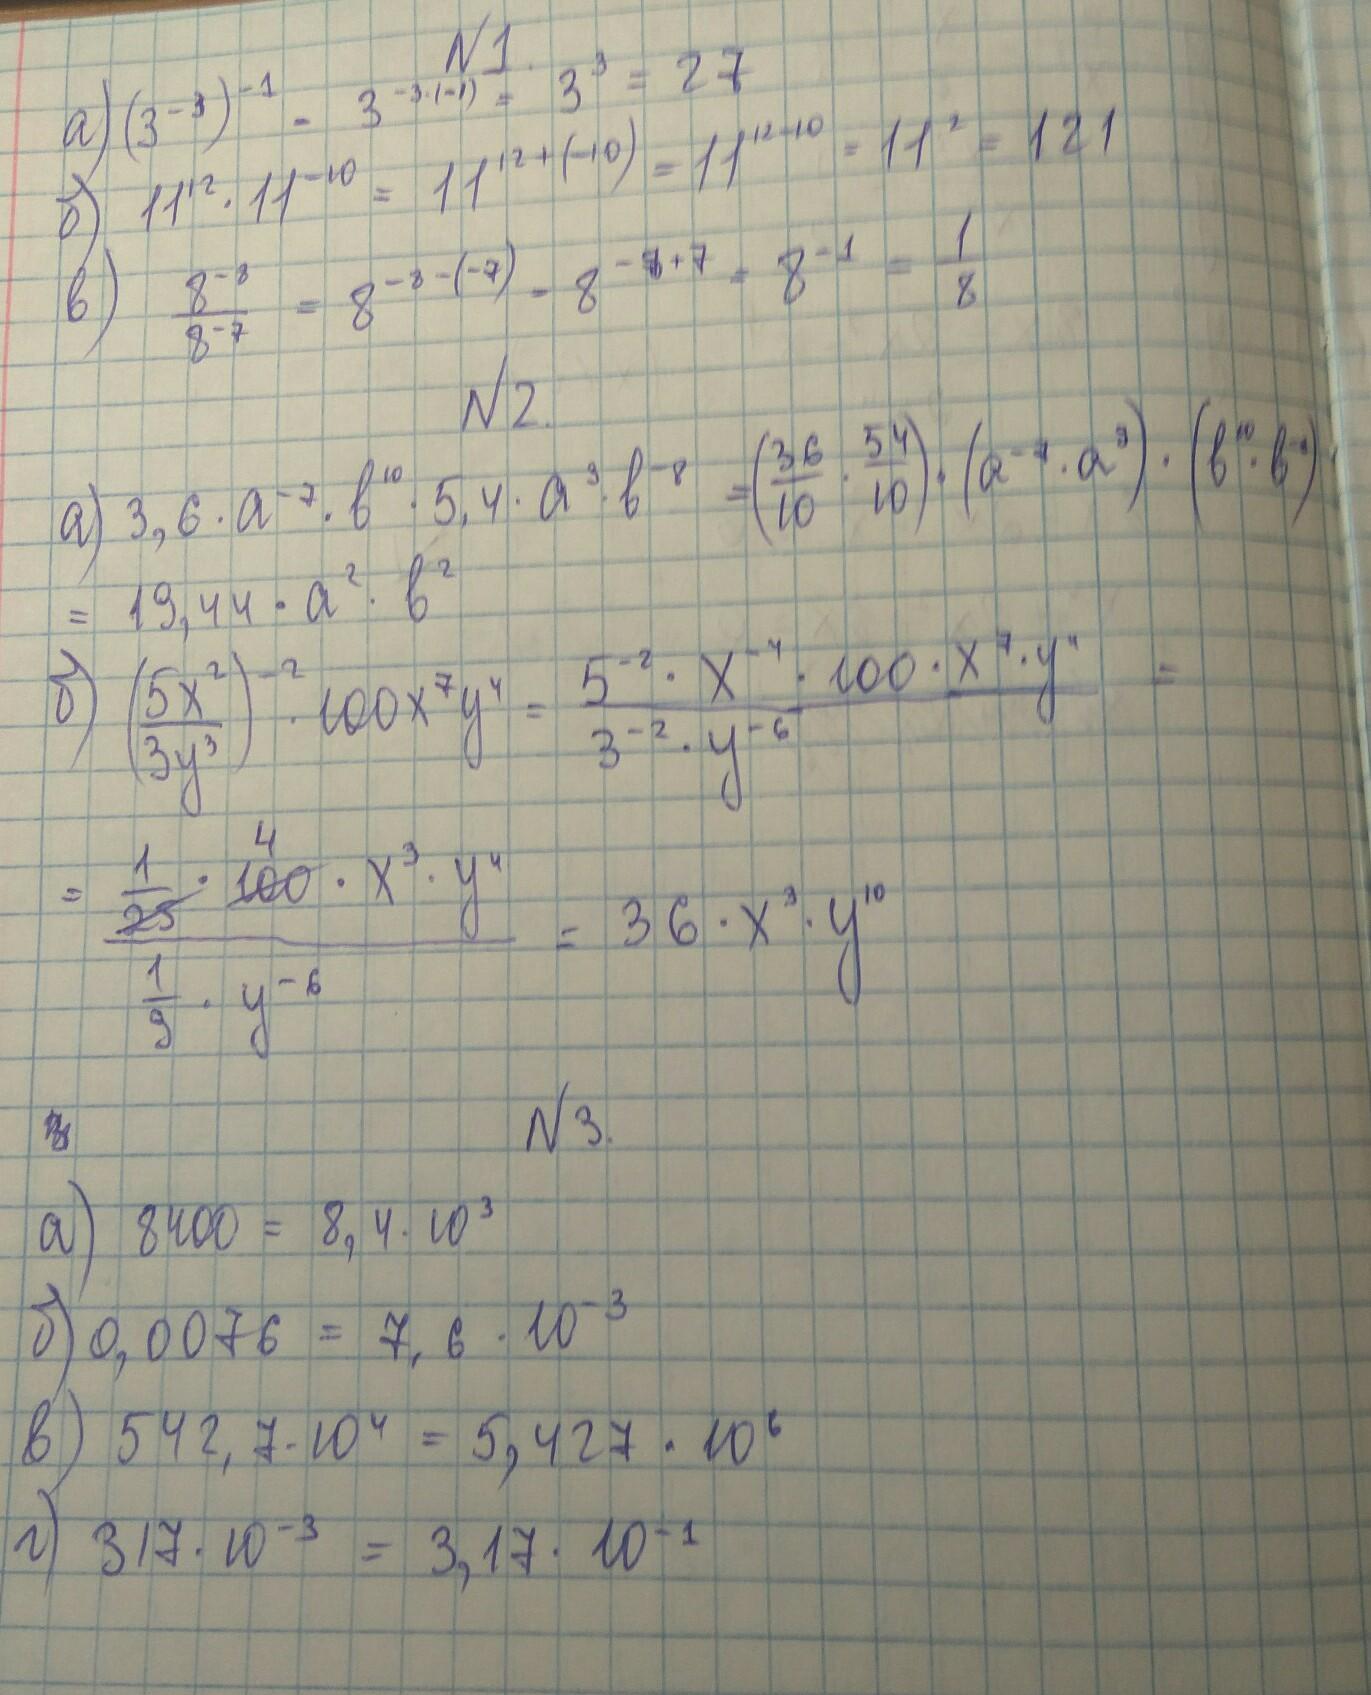 N1.
а) (3⁻³)⁻¹ = 3^(-3·(-1)) = 3³ = 27
б) 11¹² · 11⁻¹⁰ = 11^(12+(-10)) = 11^(12-10) = 11² = 121
в) 8⁻⁸/8⁻⁷ = 8^(-8-(-7)) = 8^(-8+7) = 8⁻¹ = 1/8
N2.
а) 3,6 · a⁻⁷ · b¹⁰ · 5,4 · a⁹ · b⁻⁸ = (36/10 · 54/10) · (a⁻⁷ · a⁹) · (b¹⁰ · b⁻⁸)
= 19,44 · a² · b²
б) (5x²/3y³)⁻² · 100x⁷y⁴ = (5⁻² · x⁻⁴ · 100 · x⁷ · y⁴)/(3⁻² · y⁻⁶) =
= (1/25 · 100 4 · x³ · y⁴)/(1/9 · y⁻⁶) = 36 · x³ · y¹⁰
N3.
а) 8400 = 8,4 · 10³
б) 0,0076 = 7,6 · 10⁻³
в) 542,7 · 10⁴ = 5,427 · 10⁶
г) 317 · 10⁻³ = 3,17 · 10⁻¹